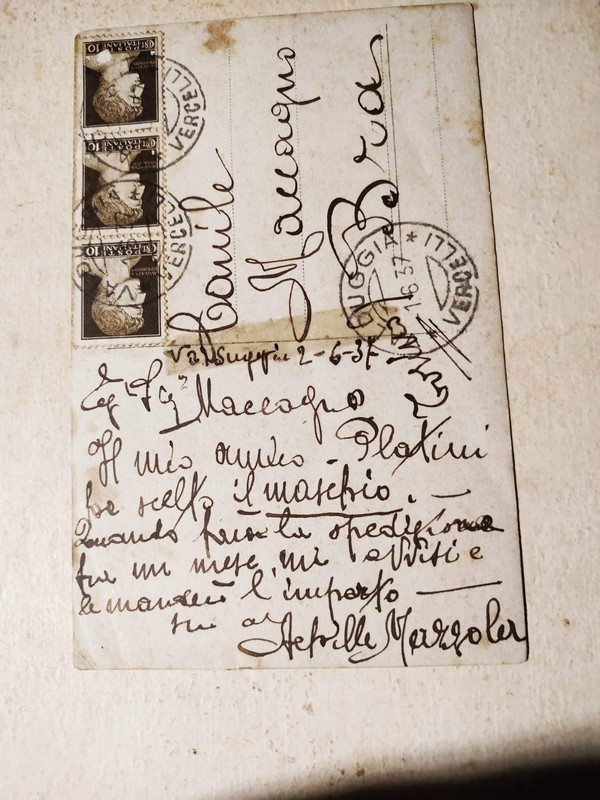 POSTE ITALIANE
10
POSTE ITALIANE
10
POSTE ITALIANE
10
VERCELLI
VERCELLI
Maccagno
Bra
VERCELLI
6.37
Valduggia 2-6-37
Eg. Sig. Maccagno
Il mio amico - Platini
ha scelto il maschio. —
Quando farà la spedizione
fra un mese, mi avvisi e
le manderò l'importo —
Achille Mazzola